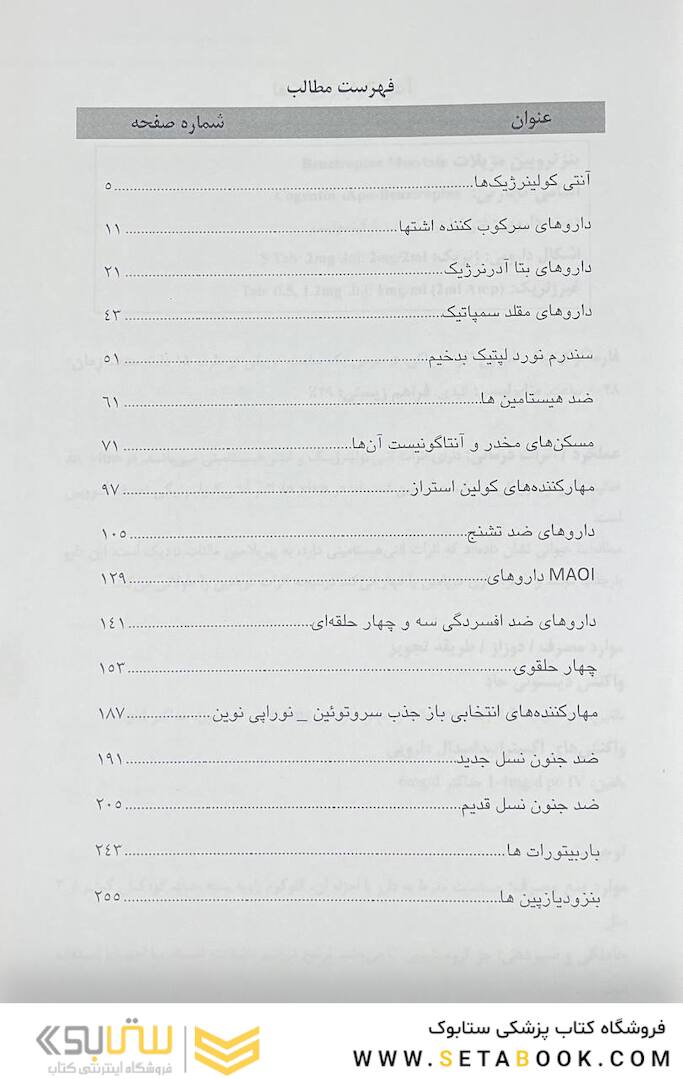 فهرست مطالب
عنوان شماره صفحه
آنتی کولینرژیک‌ها ۵
داروهای سرکوب کننده اشتها ۱۱
داروهای بتا آدرنرژیک ۲۱
داروهای مقلد سمپاتیک ٤۳
سندرم نورد لپتیک بدخیم ۵۱
ضد هیستامین ها ٦۱
مسکن‌های مخدر و آنتاگونیست آن‌ها ۷۱
مهارکننده‌های کولین استراز ۹۷
داروهای ضد تشنج ۱۰۵
MAOI داروهای ۱۲۹
داروهای ضد افسردگی سه و چهار حلقه‌ای ۱٤۱
چهار حلقوی ۱۵۳
مهارکننده‌های انتخابی باز جذب سروتوئین _ نوراپی نوین ۱۸۷
ضد جنون نسل جدید ۱۹۱
ضد جنون نسل قدیم ۲۰۵
باربیتورات ها ۲٤۳
بنزودیازپین ها ۲۵۵
فروشگاه کتاب پزشکی ستابوک
WWW.SETABOOK.COM
ستابوک
فروشگاه اینترنتی کتاب